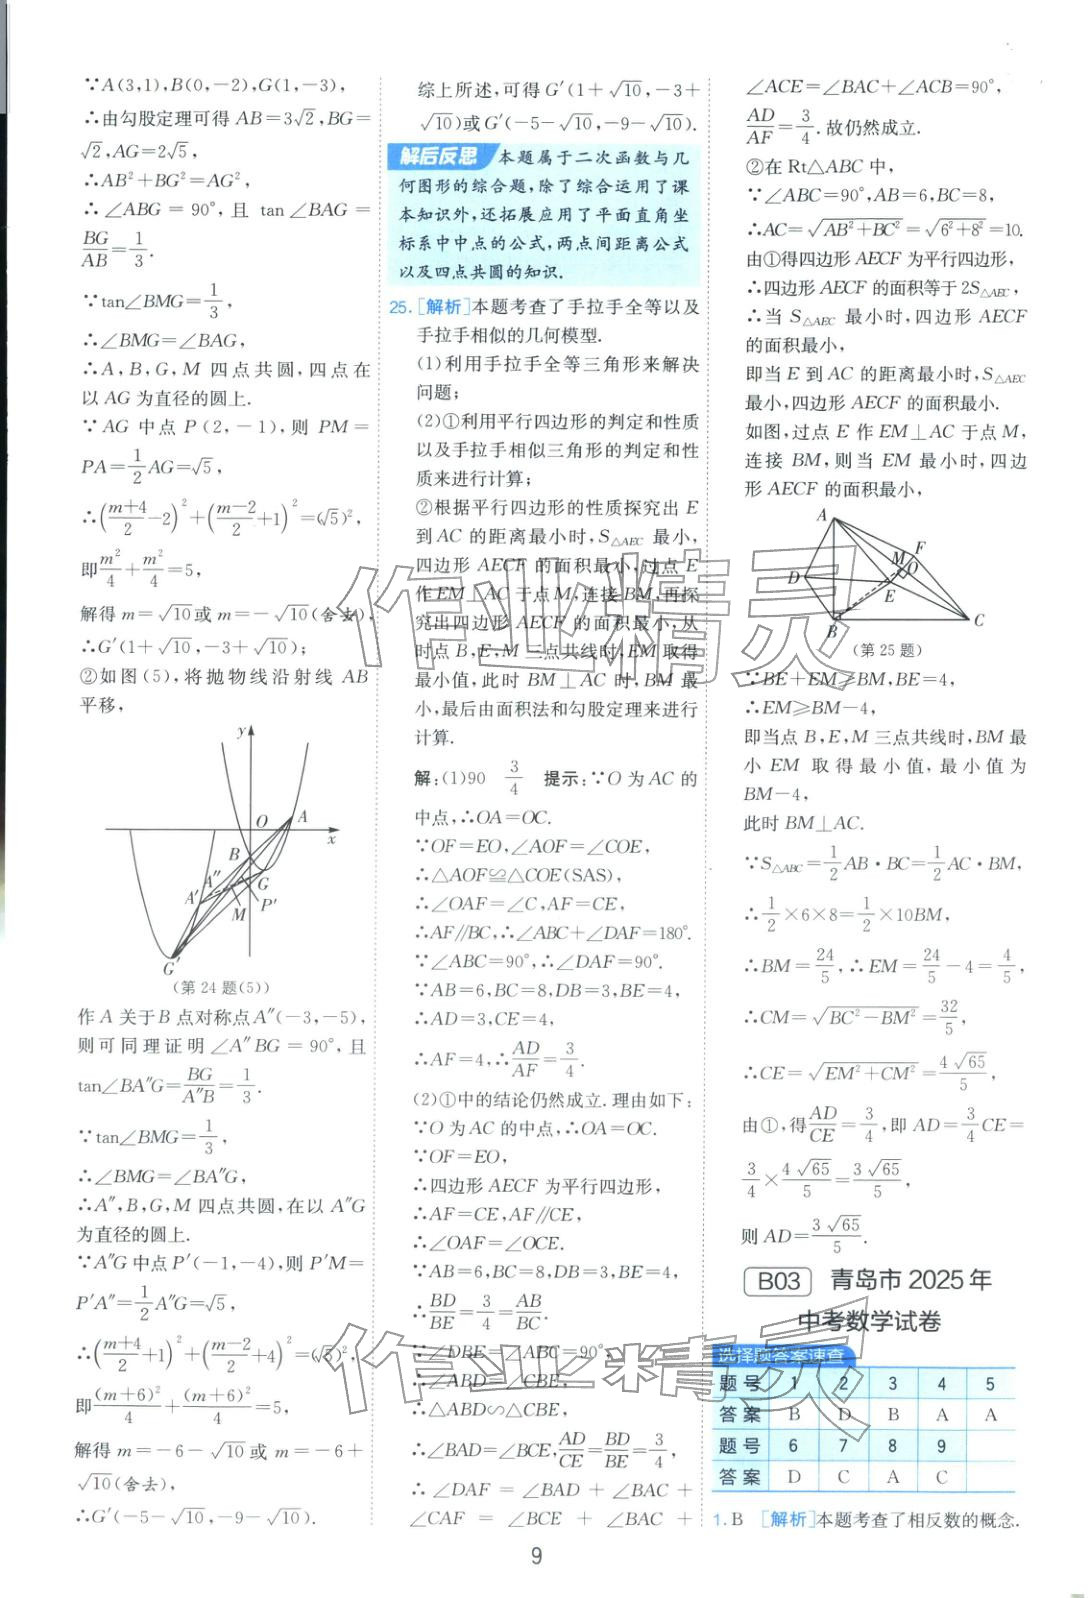 ∵A(3,1),B(0,-2),G(1,-3),
∴由勾股定理可得 AB=3√2,BG=
√2,AG=2√5,
∴AB²+BG²=AG²,
∴∠ABG = 90°,且 tan∠BAG=
BG/AB=1/3.
∵tan∠BMG=1/3,
∴∠BMG=∠BAG,
∴A,B,G,M 四点共圆,四点在
以 AG 为直径的圆上.
∵AG 中点 P(2,-1),则 PM=
PA=1/2AG=√5,
∴((m+4)/2-2)²+((m-2)/2+1)²=(√5)²,
即m²/4+m²/4=5,
解得 m=√10或 m=-√10(舍去),
∴G′(1+√10,-3+√10);
②如图(5),将抛物线沿射线 AB
平移,
y
O
A
x
B
A″
A′
G
M
P′
G′
(第 24 题(5))
作 A 关于 B 点对称点 A″(-3,-5),
则可同理证明∠A″BG=90°,且
tan∠BA″G=BG/A″B=1/3.
∵tan∠BMG=1/3,
∴∠BMG=∠BA″G,
∴A″,B,G,M 四点共圆,在以 A″G
为直径的圆上.
∵A″G 中点 P′(-1,-4),则 P′M=
P′A″=1/2A″G=√5,
∴((m+4)/2+1)²+((m-2)/2+4)²=(√5)²,
即(m+6)²/4+(m+6)²/4=5,
解得 m=-6-√10或 m=-6+
√10(舍去),
∴G′(-5-√10,-9-√10).
综上所述,可得 G′(1+√10,-3+
√10)或 G′(-5-√10,-9-√10).
解后反思 本题属于二次函数与几
何图形的综合题,除了综合运用了课
本知识外,还拓展应用了平面直角坐
标系中中点的公式,两点间距离公式
以及四点共圆的知识.
25.[解析]本题考查了手拉手全等以及
手拉手相似的几何模型.
(1)利用手拉手全等三角形来解决
问题;
(2)①利用平行四边形的判定和性质
以及手拉手相似三角形的判定和性
质来进行计算;
②根据平行四边形的性质探究出 E
到 AC 的距离最小时,S△AEC 最小,
四边形 AECF 的面积最小,过点 E
作 EM⊥AC 于点 M,连接 BM,再探
究出四边形 AECF 的面积最小,从
时点 B,E,M 三点共线时,EM 取得
最小值,此时 BM⊥AC 时,BM 最
小,最后由面积法和勾股定理来进行
计算.
解:(1)90 3/4 提示:∵O 为 AC 的
中点,∴OA=OC.
∵OF=EO,∠AOF=∠COE,
∴△AOF≌△COE(SAS),
∴∠OAF=∠C,AF=CE,
∴AF∥BC,∴∠ABC+∠DAF=180°.
∵∠ABC=90°,∴∠DAF=90°.
∵AB=6,BC=8,DB=3,BE=4,
∴AD=3,CE=4,
∴AF=4,∴AD/AF=3/4.
(2)①中的结论仍然成立.理由如下:
∵O 为 AC 的中点,∴OA=OC.
∵OF=EO,
∴四边形 AECF 为平行四边形,
∴AF=CE,AF∥CE,
∴∠OAF=∠OCE.
∵AB=6,BC=8,DB=3,BE=4,
∴BD/BE=3/4=AB/BC.
∵∠DBE=∠ABC=90°,
∴∠ABD=∠CBE,
∴△ABD∽△CBE,
∴∠BAD=∠BCE,AD/CE=BD/BE=3/4,
∴∠DAF=∠BAD+∠BAC+
∠CAF=∠BCE+∠BAC+
∠ACE=∠BAC+∠ACB=90°,
AD/AF=3/4.故仍然成立.
②在 Rt△ABC 中,
∵∠ABC=90°,AB=6,BC=8,
∴AC=√(AB²+BC²)=√(6²+8²)=10.
由①得四边形 AECF 为平行四边形,
∴四边形 AECF 的面积等于 2S△AEC,
∴当 S△AEC 最小时,四边形 AECF
的面积最小,
即当 E 到 AC 的距离最小时,S△AEC
最小,四边形 AECF 的面积最小.
如图,过点 E 作 EM⊥AC 于点 M,
连接 BM,则当 EM 最小时,四边
形 AECF 的面积最小,
A
F
M
O
D
E
B
C
(第 25 题)
∵BE+EM≥BM,BE=4,
∴EM≥BM-4,
即当点 B,E,M 三点共线时,BM 最
小 EM 取得最小值,最小值为
BM-4,
此时 BM⊥AC.
∵S△ABC=1/2AB·BC=1/2AC·BM,
∴1/2×6×8=1/2×10BM,
∴BM=24/5,∴EM=24/5-4=4/5,
∴CM=√(BC²-BM²)=32/5,
∴CE=√(EM²+CM²)=4√65/5,
由①,得AD/CE=3/4,即 AD=3/4CE=
3/4×4√65/5=3√65/5,
则 AD=3√65/5.
B03 青岛市 2025 年
中考数学试卷
选择题答案速查
题号 1 2 3 4 5
答案 B D B A A
题号 6 7 8 9
答案 D C A C
1. B [解析]本题考查了相反数的概念.
9
作业精灵
作业精灵